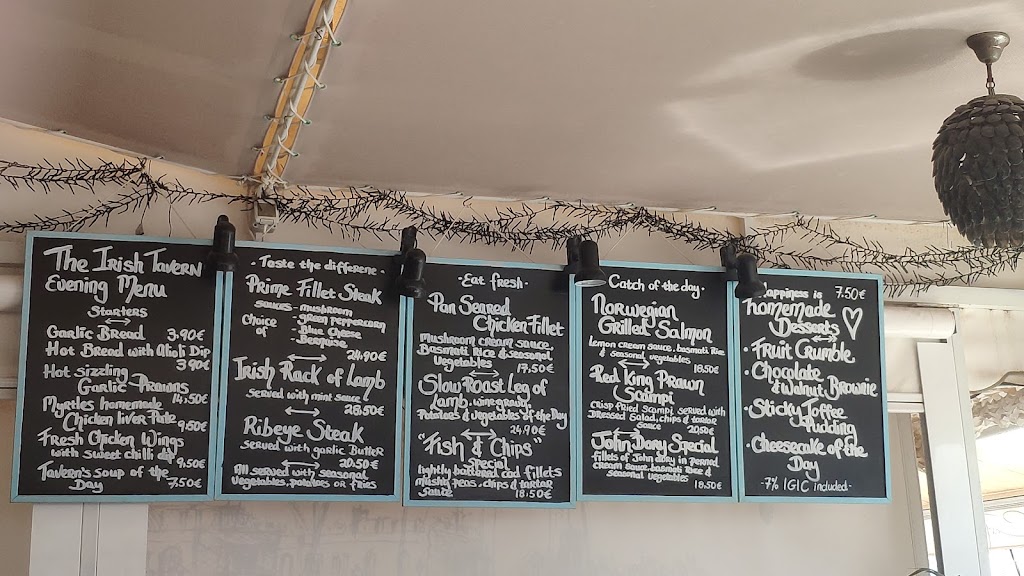 The Irish Tavern
Evening Menu
Starters
Garlic Bread 3.90€
Hot Bread with Alioli Dip
3,90€
Hot sizzling
Garlic Prawns
14,50€
Myrtles homemade
Chicken liver Pate
9,50€
Fresh Chicken Wings
with sweet chilli dip 9,50€
Tavern's soup of the
Day 7.50€
· Taste the differenc ·
Prime Fillet Steak
sauces - mushroom
Choice - green peppercorn
of - Blue Cheese
- Bearnaise
24,90€
Irish Rack of Lamb
served with mint sauce
28,50€
Ribeye Steak
served with garlic Butter
20.50€
All served with seasonal
vegetables, potatoes or fries
· Eat fresh ·
Pan Seared
Chicken Fillet
mushroom cream sauce
Basmati Rice & seasonal
Vegetables 17.50€
Slow Roast Leg of
Lamb, wine gravy
Potatoes & vegetables of the Day
24,90€
"Fish & Chips"
Special
lightly battered cod fillets
mushy peas, chips & tartar
sauce 18.50€
· Catch of the day ·
Norwegian
Grilled Salmon
Lemon cream sauce, basmati Rice
& seasonal vegetables
18.50€
Red King Prawn
Scampi
Crisp fried Scampi served with
Dressed Salad, chips & tartar
sauce 20,50€
John Dory Special
fillets of John dory in Pernod
cream sauce, basmati Rice &
seasonal vegetables 18.50€
Happiness is 7.50€
homemade
Desserts
· Fruit Crumble
· Chocolate
& Walnut Brownie
· Sticky Toffee
Pudding
· Cheesecake of the
Day
- 7% IGIC included -